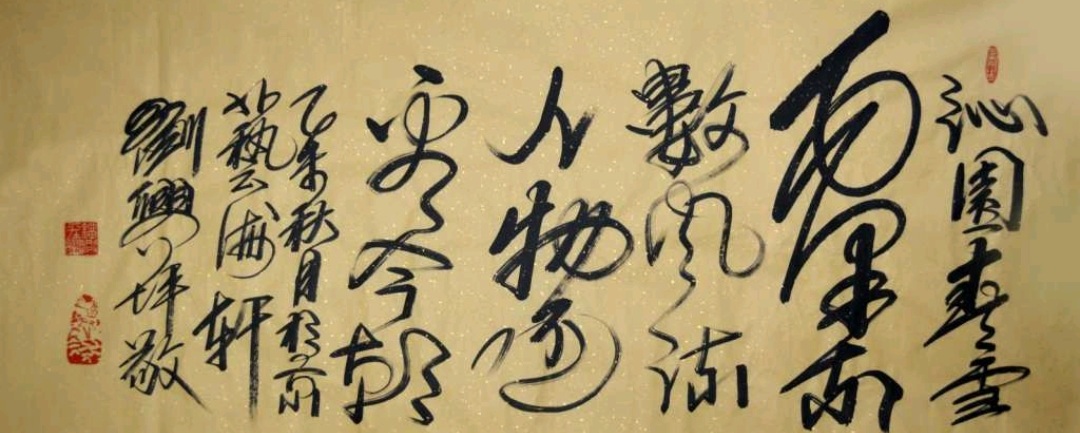 沁園春雪
數風流
人物還
看今朝
乙未秋月於京
北藝海軒
劉興坪敬